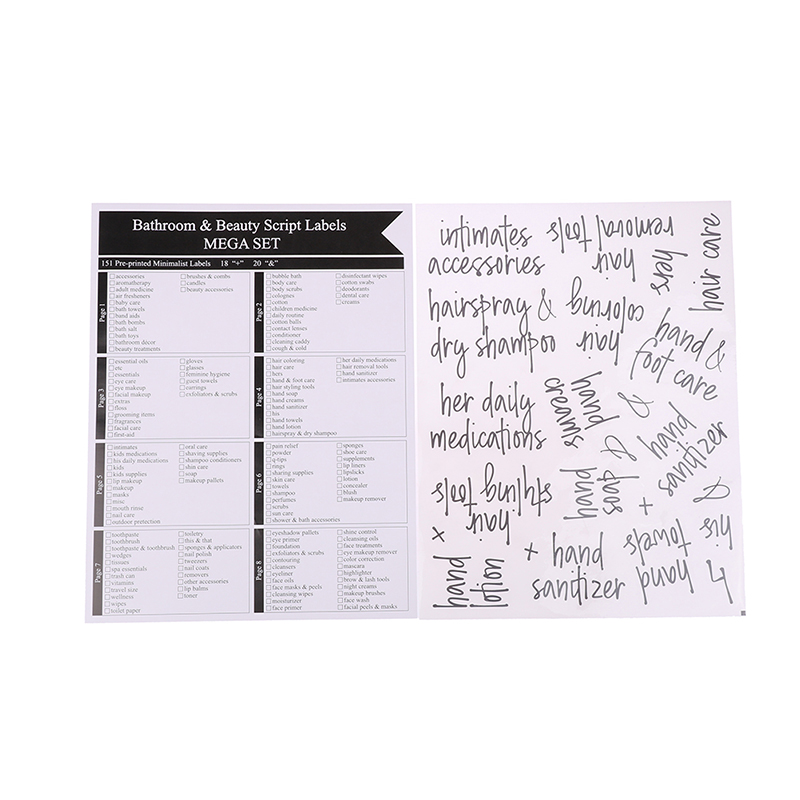 Bathroom & Beauty Script Labels
MEGA SET
151 Pre-printed Minimalist Labels 18 "+" 20 "&"
Page 1
accessories
aromatherapy
adult medicine
air fresheners
baby care
bath towels
band aids
bath bombs
bath salt
bath toys
bathroom décor
beauty treatments
brushes & combs
candles
beauty accessories
Page 2
bubble bath
body care
body scrubs
colognes
cotton
children medicine
daily routine
cotton balls
contact lenses
conditioner
cleaning caddy
cough & cold
disinfectant wipes
cotton swabs
deodorants
dental care
creams
Page 3
essential oils
etc
essentials
eye care
eye makeup
facial makeup
extras
floss
grooming items
fragrances
facial care
first-aid
gloves
glasses
feminine hygiene
guest towels
earrings
exfoliators & scrubs
Page 4
hair coloring
hair care
hers
hand & foot care
hair styling tools
hand soap
hand creams
hand sanitizer
his
hand towels
hand lotion
hairspray & dry shampoo
her daily medications
hair removal tools
hand sanitizer
intimates accessories
Page 5
intimates
kids medications
his daily medications
kids
kids supplies
lip makeup
makeup
masks
misc
mouth rinse
nail care
outdoor protection
oral care
shaving supplies
shampoo conditioners
skin care
soap
makeup pallets
Page 6
pain relief
powder
q-tips
rings
sharing supplies
skin care
towels
shampoo
perfumes
scrubs
sun care
shower & bath accessories
sponges
shoe care
supplements
lip liners
lipsticks
lotion
concealer
blush
makeup remover
Page 7
toothpaste
toothbrush
toothpaste & toothbrush
wedges
tissues
spa essentials
trash can
vitamins
travel size
wellness
wipes
toilet paper
toiletry
this & that
sponges & applicators
nail polish
tweezers
nail coats
removers
other accessories
lip balms
toner
Page 8
eyeshadow pallets
eye primer
foundation
exfoliators & scrubs
contouring
cleansers
eyeliner
face oils
face masks & peels
cleansing wipes
moisturizer
face primer
shine control
cleansing oils
face treatments
eye makeup remover
color correction
mascara
highlighter
brow & lash tools
night creams
makeup brushes
face wash
facial peels & masks
intimates
accessories
hair
removal tools
hers
hair care
hairspray &
dry shampoo
hair
coloring
hand &
foot care
her daily
medications
hand
creams
&
hand
sanitizer
hair
styling tools
hand
soap
&
+
&
his
x
hand
lotion
+
hand
sanitizer
hand
towels
+